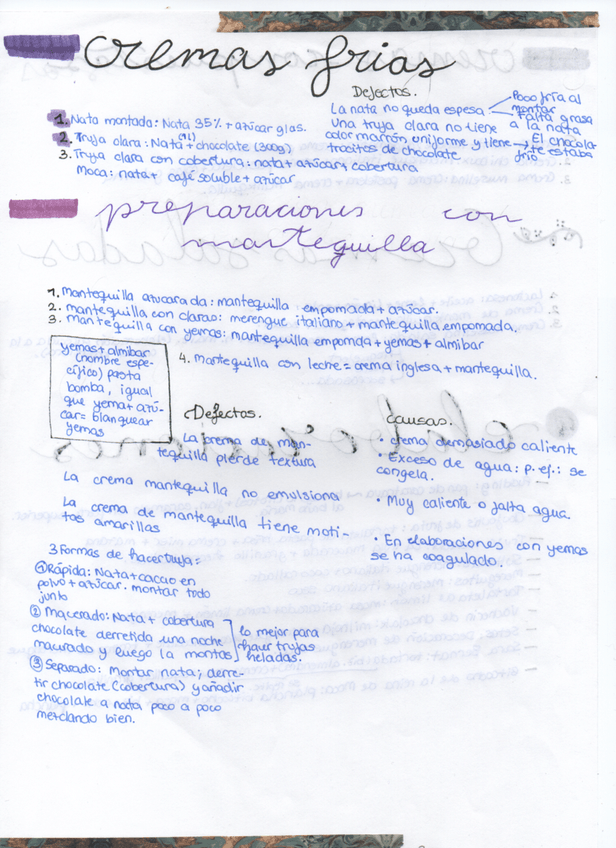 cremas frias
Defectos.
La nata no queda espesa
Poco fría al
montar
Falta grasa
a la nata
una truja clara no tiene
color marrón uniforme y tiene
trocitos de chocolate
El chocola-
te estaba
frío
1. Nata montada: Nata 35% + azúcar glas.
(1L)
2. Truja clara: Nata + chocolate (300g)
3. Truja clara con cobertura: nata + azúcar + cobertura
Moca: nata + café soluble + azúcar
preparaciones con
mantequilla
1. Mantequilla azucarada: mantequilla empomada + azúcar.
2. mantequilla con claras: merengue italiano + mantequilla empomada.
3. Mantequilla con yemas: mantequilla empomda + yemas + almibar
4. Mantequilla con leche = crema inglesa + mantequilla.
yemas + almibar
(nombre espe-
cífico) pasta
bomba, igual
que yema + azú-
car = blanquear
yemas
Defectos.
La crema de man-
tequilla pierde textura
La crema mantequilla no emulsiona
La crema de mantequilla tiene moti-
tas amarillas
causas.
• crema demasiado caliente
• Exceso de agua: p. ej.: se
congela.
• Muy caliente o falta agua.
• En elaboraciones con yemas
se ha coagulado.
3 Formas de hacer truja:
① Rápida: Nata + cacao en
polvo + azúcar. montar todo
junto
② Macerado: Nata + cobertura
chocolate derretida una noche
y luego la montas
lo mejor para
hacer trujas
heladas.
③ Separado: montar nata; derre-
tir chocolate (cobertura) y añadir
chocolate a nata poco a poco
mezclando bien.